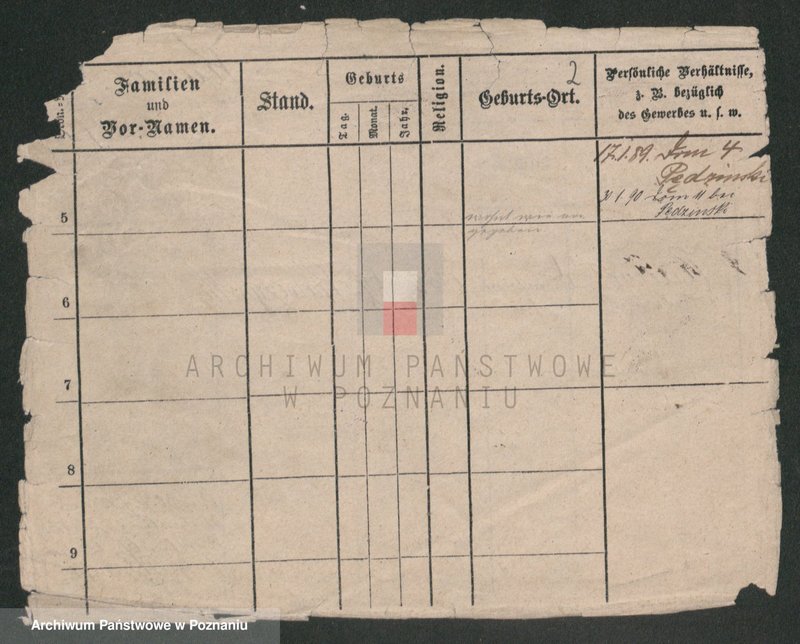 2
Familien
und
Vor-Namen.
Stand.
Geburts
Tag.
Monat.
Jahr.
Religion.
Geburts-Ort.
Persönliche Verhältnisse,
z. B. bezüglich
des Gewerbes u. s. w.
17.1.89. Dom 4
Pędzinski
3/1 90 Dom 11 bei
Pedzinski
5
6
7
8
9
ARCHIWUM PAŃSTWOWE
W POZNANIU
Archiwum Państwowe w Poznaniu